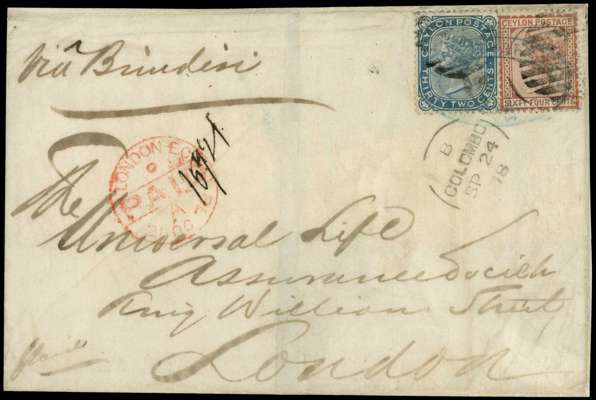 Via Brindisi
CEYLON POSTAGE
THIRTY TWO CENTS
CEYLON POSTAGE
SIXTY FOUR CENTS
B
COLOMBO
SP 24
18
LONDON E.C
PAID
The
Universal Life
Assurance Society
King William Street
London